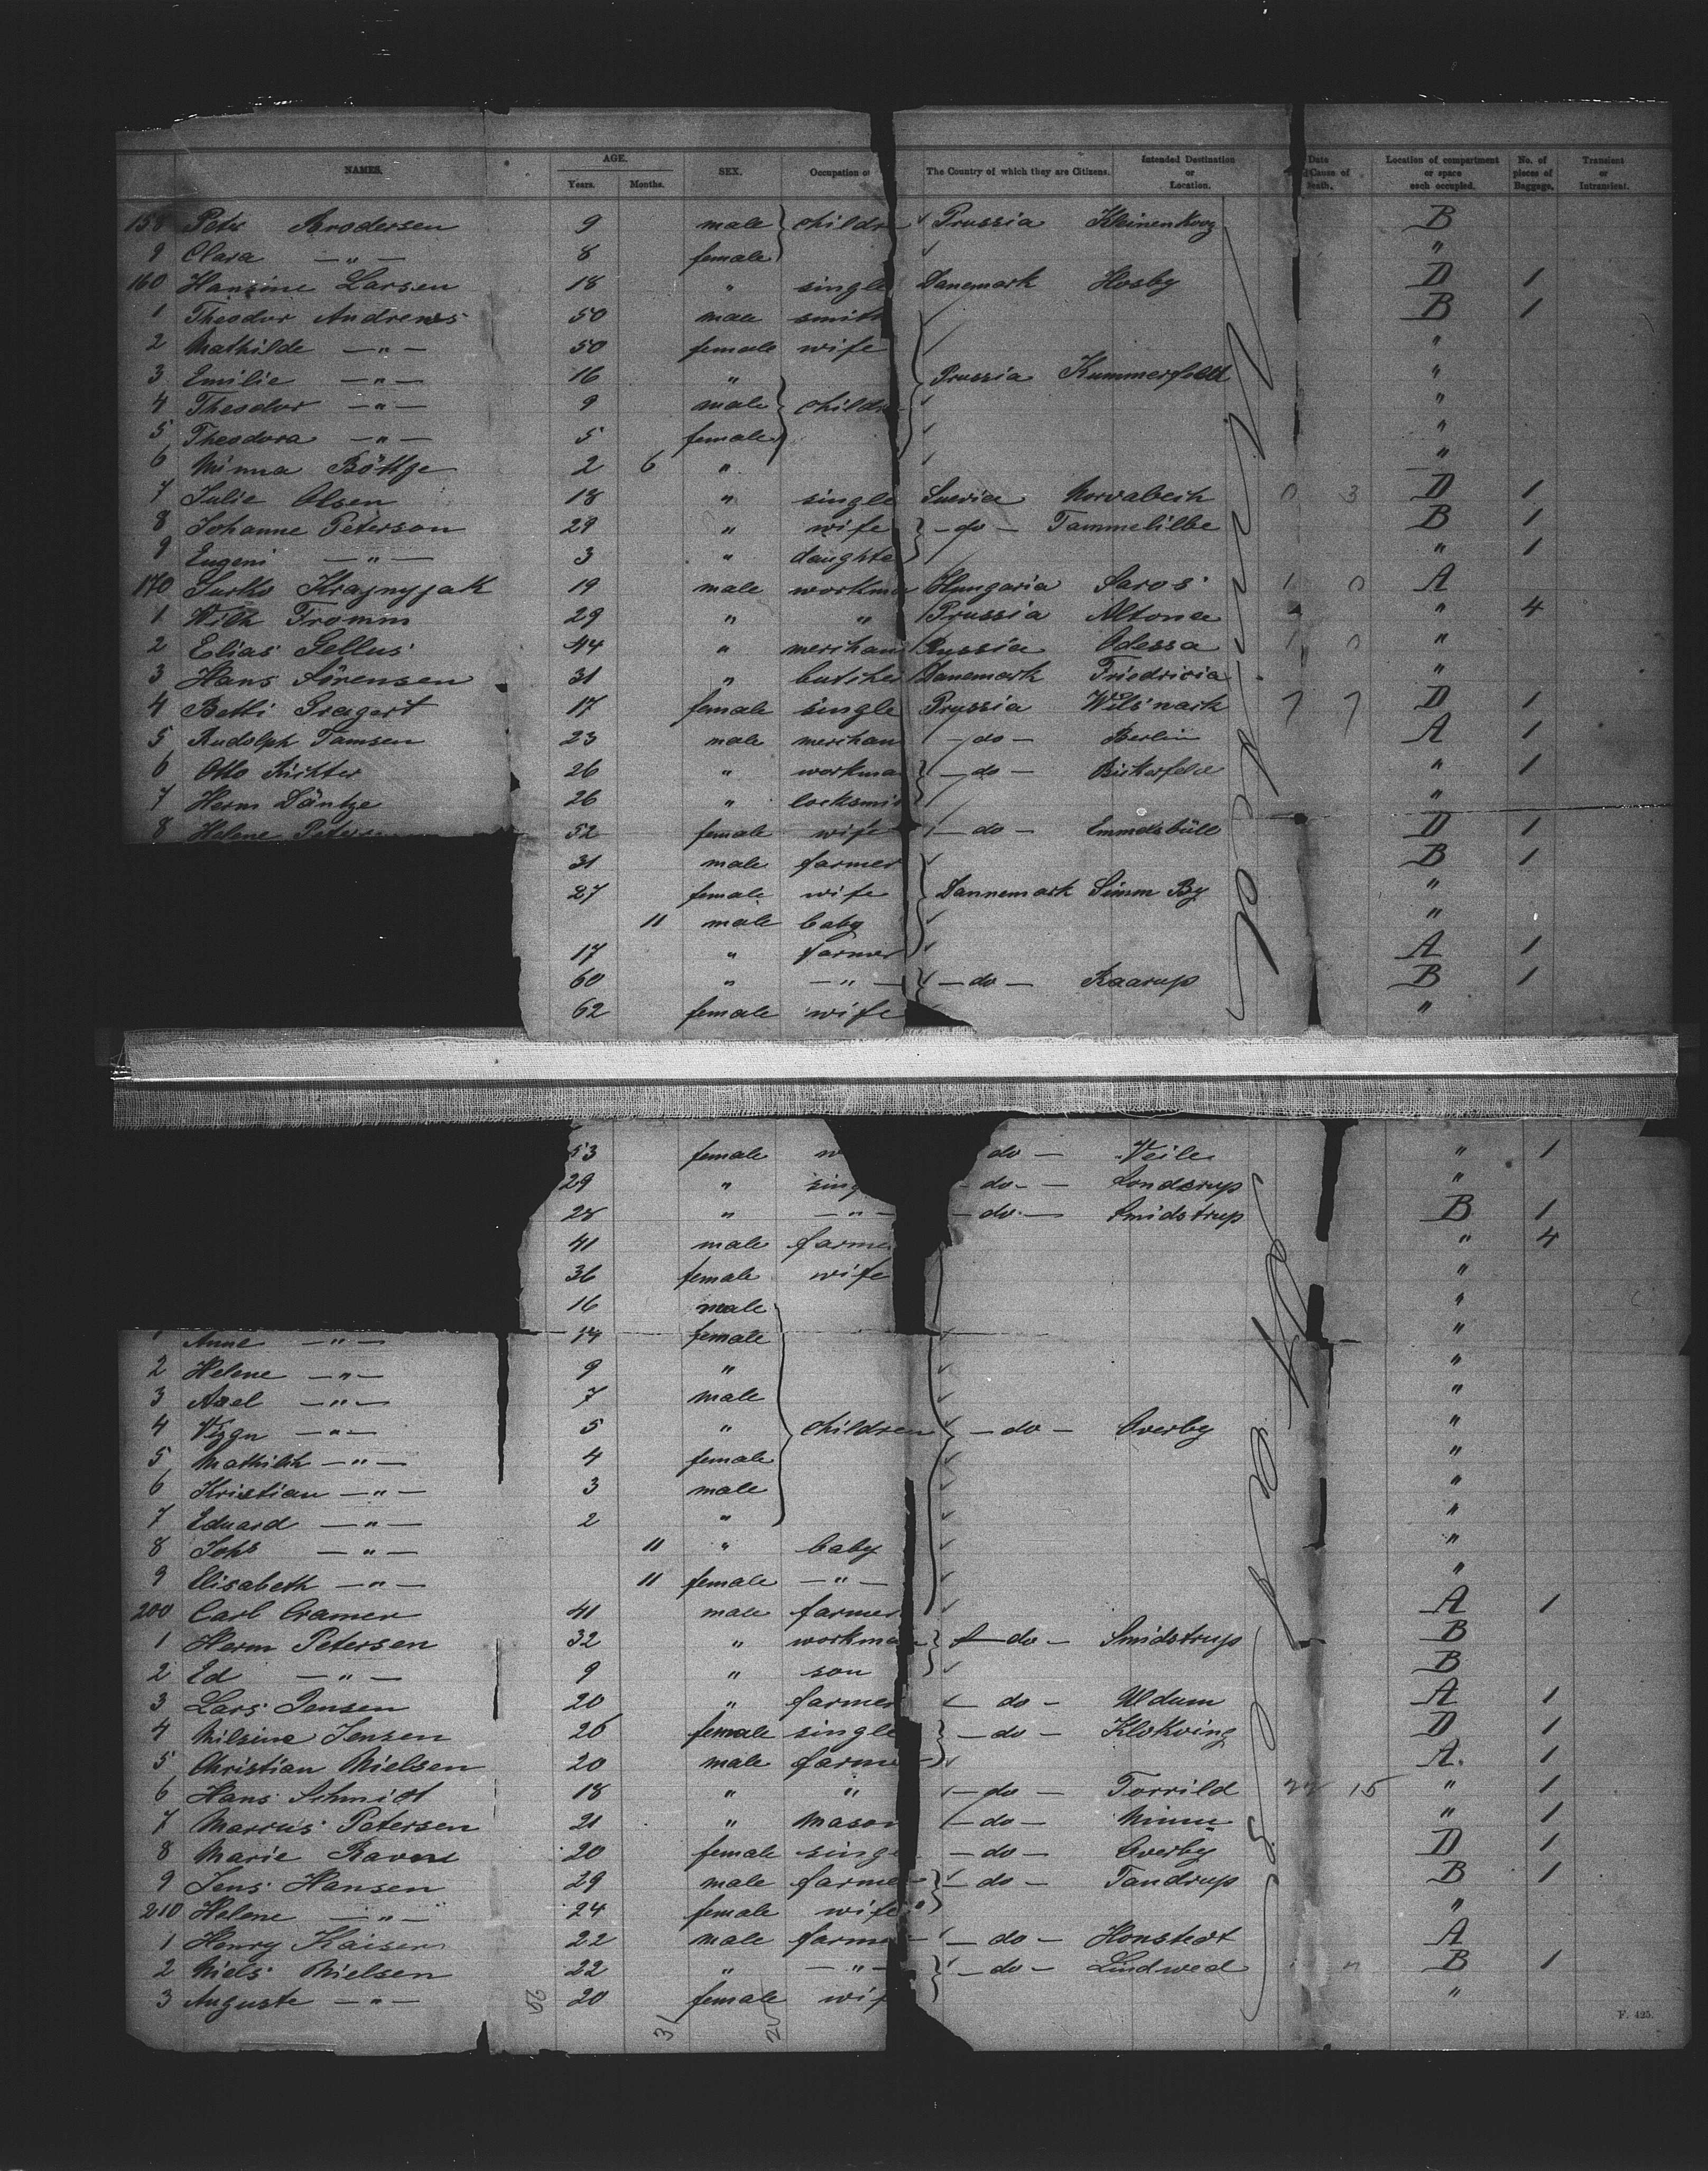 NAMES. AGE. Years. Months. SEX. Occupation The Country of which they are Citizens. Intended Destination or Location. Date Cause of Death. Location of compartment or space each occupied. No. of pieces of Baggage. Transient or Intransient.
158 Peter Brodersen 9 male childr Prussia B
9 Clara —"— 8 female "
160 Hansine Larsen 18 " single Danemark Hosby D 1
1 Theodor Andrews 50 male smith B 1
2 Mathilde —"— 50 female wife "
3 Emilie —"— 16 " Prussia Kummerfeld "
4 Theodor —"— 9 male childr "
5 Theodora —"— 5 female "
6 Minna Böttge 2 6 " "
7 Julie Olsen 18 " single 0 3 D 1
8 Johanne Peterson 29 " wife —do— B 1
9 Eugeni —"— 3 " daughte " 1
170 Krajnyjak 19 male workma Hungaria Saros 1 0 A
1 Wilh Fromm 29 " " Prussia Altona " 4
2 Elias Gellus 44 " merchan Russia Odessa 1 0 "
3 Hans Sörensen 31 " butcher Danemark Friedricia "
4 Betti 17 female single Prussia Wilsnack 7 7 D 1
5 Rudolph Tamsen 23 male merchan —do— Berlin A 1
6 Otto Richter 26 " workma —do— " 1
7 Herm Däntze 26 " locksmi "
8 Helene Peterse 52 female wife —do— Emmelsbüll D 1
31 male farmer B 1
27 female wife Dannemark Simm By "
11 male baby "
17 " farmer A 1
60 " —"— —do— Kaarup B 1
62 female wife "
53 female w do— Veile " 1
29 " sing —do— "
28 " —"— —do— Smidstrup B 1
41 male farme " 4
36 female wife "
16 male "
1 Anne —"— 14 female "
2 Helene —"— 9 " "
3 Axel —"— 7 male "
4 Viggn —"— 5 " children —do— Overby "
5 —"— 4 female "
6 Kristian —"— 3 male "
7 Eduard —"— 2 " "
8 Johs —"— 11 " baby "
9 Elisabeth —"— 11 female —"— "
200 Carl Cramer 41 male farmer A 1
1 Herm Petersen 32 " workma —do— Smidstrup B
2 Ed —"— 9 " son B
3 Lars Jensen 20 " farmer —do— Uldum A 1
4 Nilsine Jensen 26 female single —do— Klokving D 1
5 Christian Nielsen 20 male farme A. 1
6 Hans Schmidt 18 " " —do— Torrild 15 " 1
7 Marcus Petersen 21 " mason —do— " 1
8 Marie Ravn 20 female singl —do— Overby D 1
9 Jens Hansen 29 male farme —do— Tandrup B 1
210 Helene —"— 24 female wife "
1 Henry Kaiser 22 male farme —do— Honstedt A
2 Niels Nielsen 22 " —"— —do— Lindwed B 1
3 Auguste —"— 20 female wif "
56 31 20
F. 425.